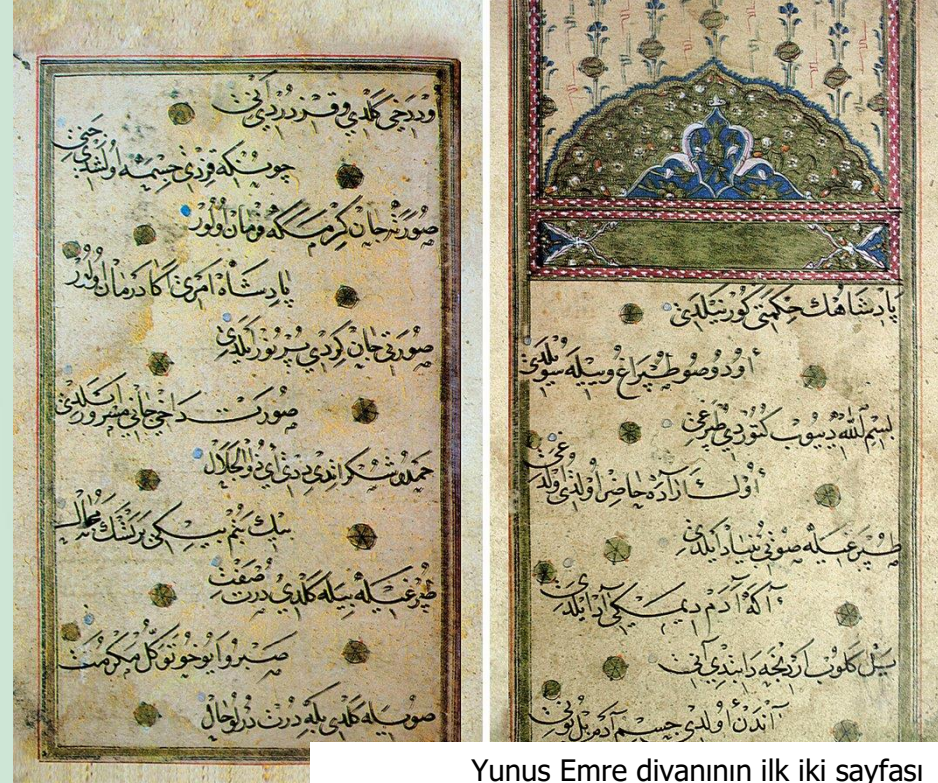 پادشاهك حكمتی كور نیلدی
أود و صو طپراغ و ییله سویلدی
بسم الله دییوب كتوردی طپرغی
أول آراده حاضر أولدی اول دخی
طپرغیله صویی بنیاد ایلدی
آكه آدم دیمكی آد ایلدی
ییل كلوب آردنجه دپرتدی آنی
آندن أولدی جسم آدم بل بونی
اود دخی كلدی و قزدردی آنی
چونكه قزدی جسمه اولاشدی جانی
صورته جان كرمكه فرمان اولور
پادشاه امری آكا درمان اولور
صورته جان كردی پرنور ایلدی
صورت داخی جانی مسرور ایلدی
حمد و شكر اندی دیدی ای ذوالجلال
بیك بنم بیكی یرتسك نه محال
طپرغیله بیله كلدی درت صفت
صبر و ایو خو توكل مكرمت
صوییله كلدی بله درت درلو حال
Yunus Emre divanının ilk iki sayfası